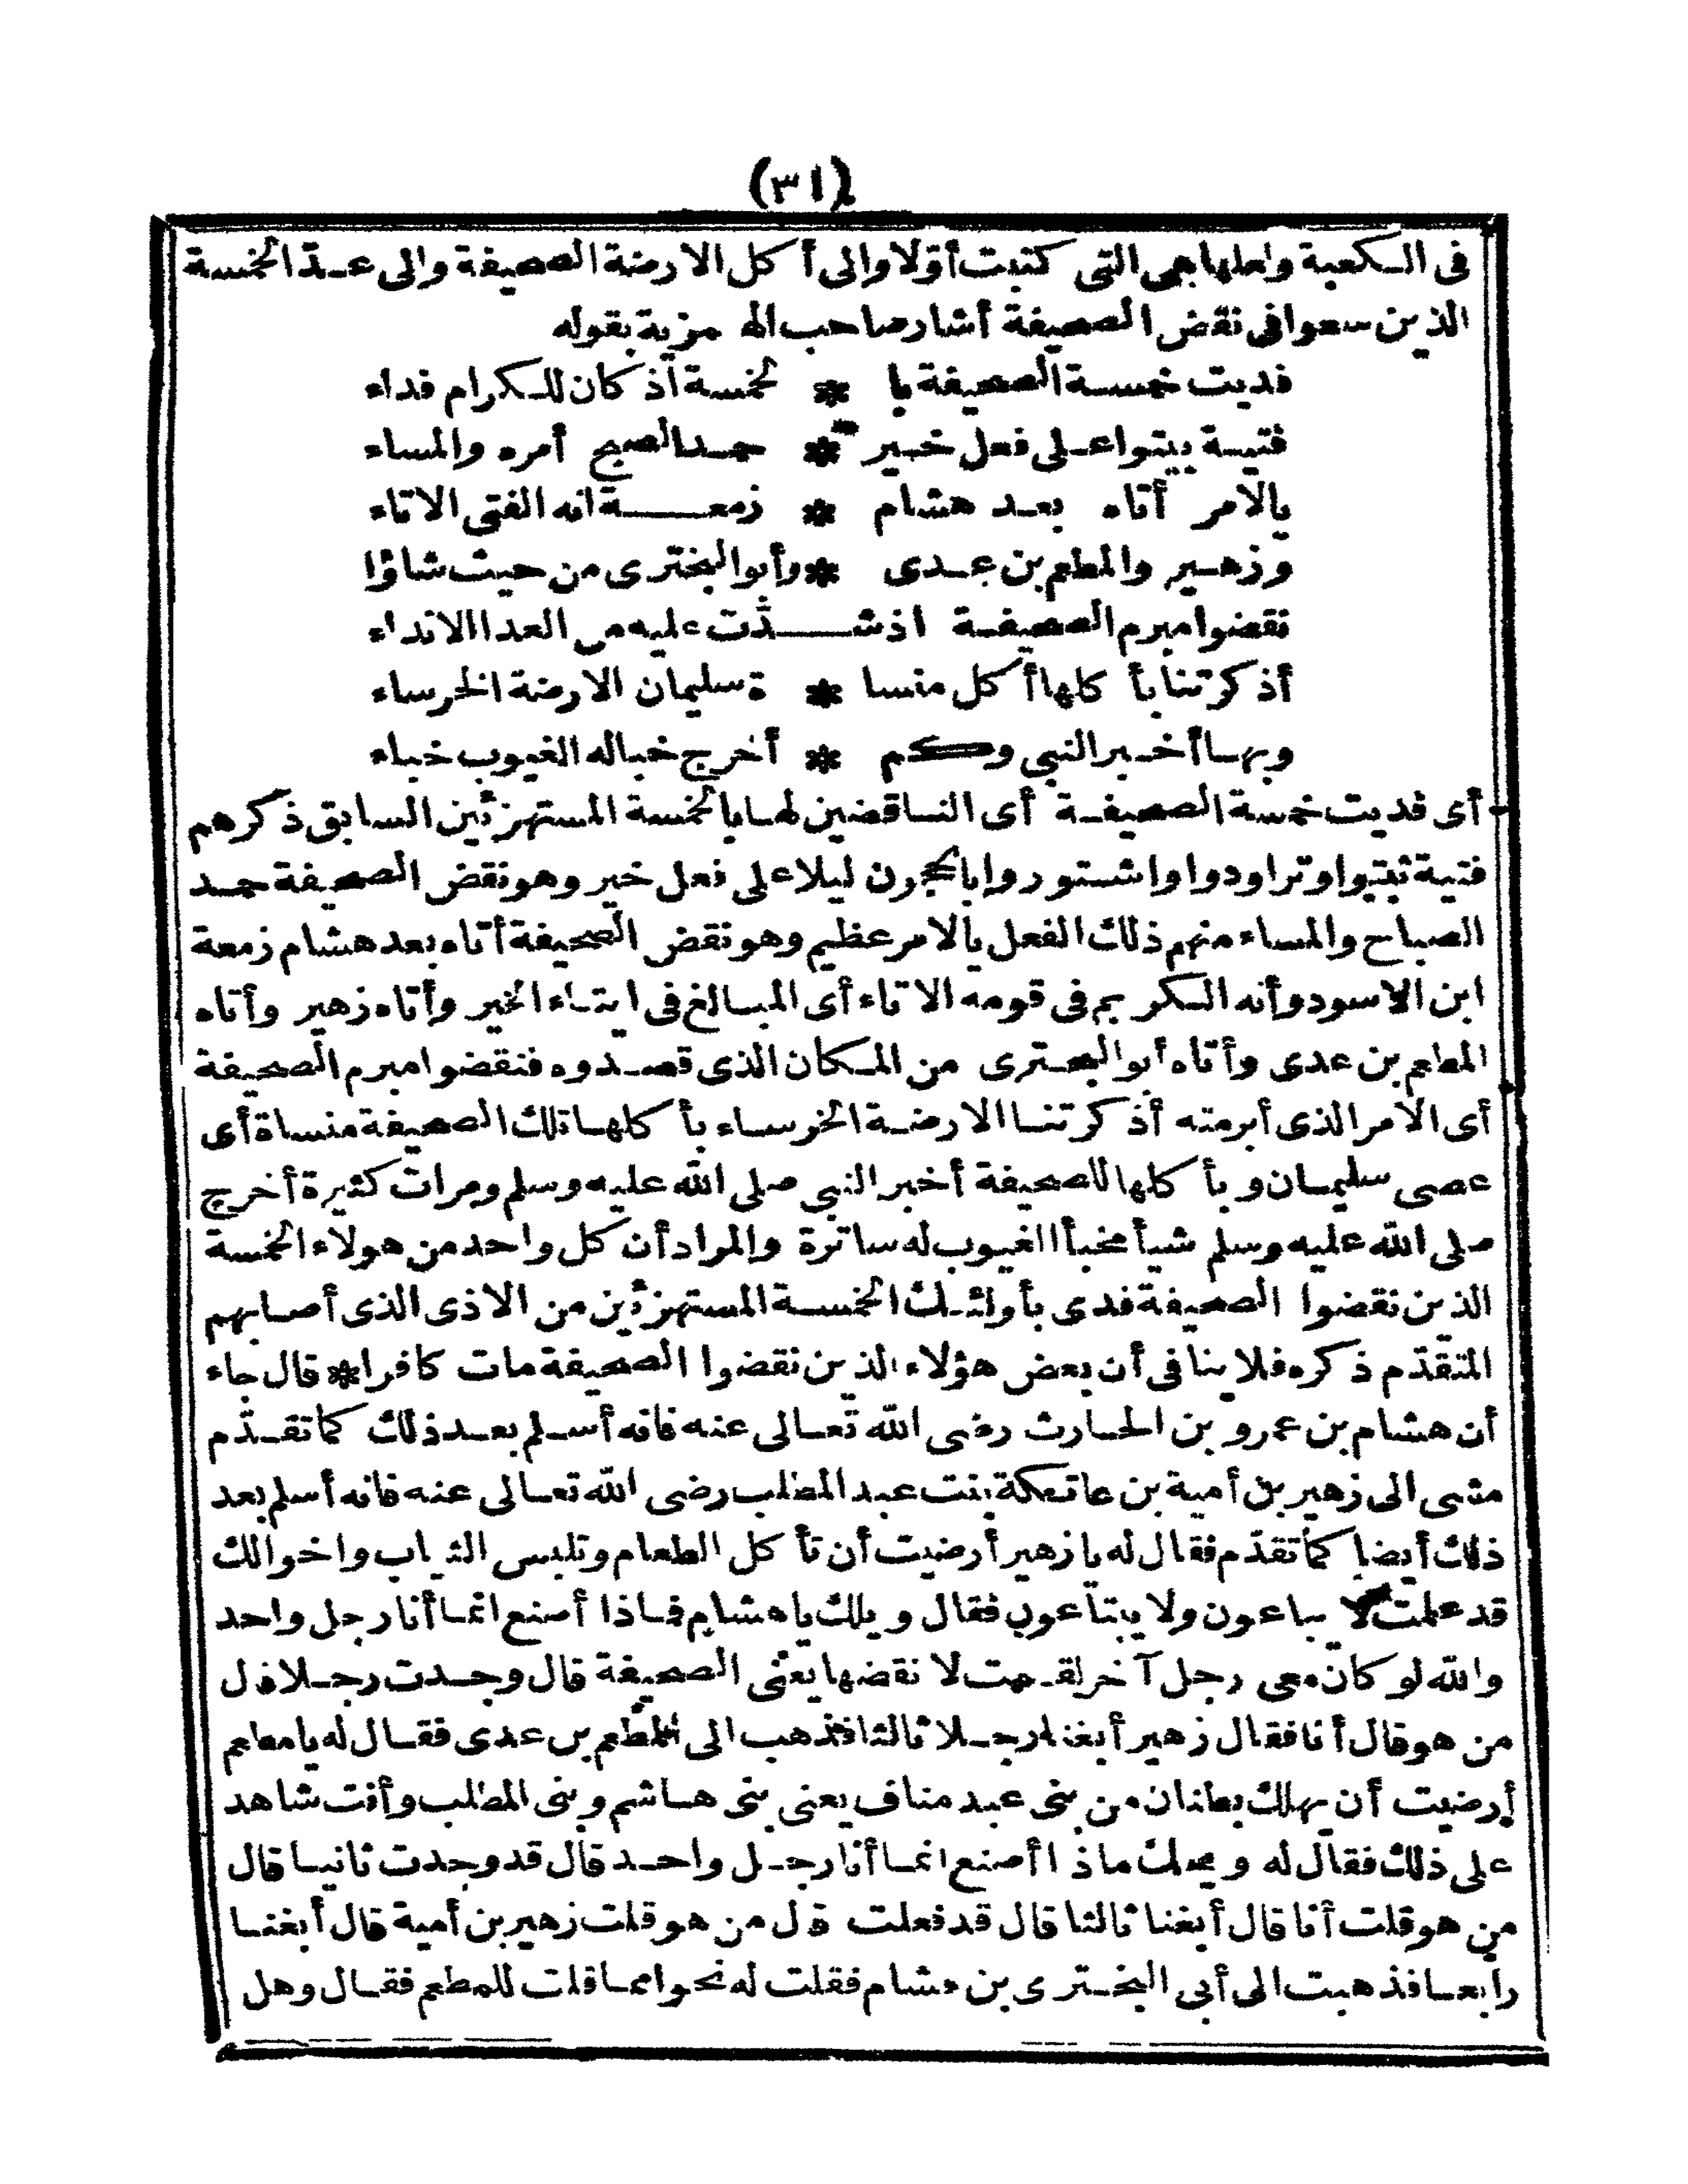 (٣١)
فى الكعبة ولعلها هى التى كتبت أوّلا والى أكل الارضة الصحيفة والى عدّة الخمسة
الذين سعوا فى نقض الصحيفة أشار صاحب الهمزية بقوله
فديت خمسة الصحيفة با * لخمسة اذ كان للكرام فداء
فتية بيتوا على فعل خير * حمد الصبح أمره والمساء
يالامر أتاه بعد هشام * زمعة انه الفتى الاتاء
وزهير والمطعم بن عدى * وأبوالبخترى من حيث شاؤا
نقضوا مبرم الصحيفة اذ شدّت عليه من العدا الانداء
أذكرتنا بأكلها أكل منسا * ة سليمان الارضة الخرساء
وبها أخبر النبي وكم * أخرج خباله الغيوب خباء
أى فديت خمسة الصحيفة أى الناقضين لها بالخمسة المستهزئين السابق ذكرهم
فتية ثبتوا وتراودوا واشتوروا بالحجون ليلا على فعل خير وهو نقض الصحيفة حمد
الصباح والمساء منهم ذلك الفعل يالامر عظيم وهو نقض الصحيفة أتاه بعد هشام زمعة
ابن الاسود وأنه الكريم فى قومه الاتاء أى المبالغ فى ايتاء الخير وأتاه زهير وأتاه
المطعم بن عدى وأتاه أبوالبخترى من المكان الذى قصدوه فنقضوا مبرم الصحيفة
أى الامر الذى أبرمته أذكرتنا الارضة الخرساء بأكلها تلك الصحيفة منساة أى
عصى سليمان وبأكلها للصحيفة أخبر النبي صلى الله عليه وسلم ومرات كثيرة أخرج
صلى الله عليه وسلم شيأ مخبأ الغيوب له ساترة والمراد أن كل واحد من هولاء الخمسة
الذين نقضوا الصحيفة فدى بأولئك الخمسة المستهزئين من الاذى الذى أصابهم
المتقدّم ذكره فلا ينافى أن بعض هؤلاء الذين نقضوا الصحيفة مات كافرا * قال جاء
أن هشام بن عمرو بن الحارث رضى الله تعالى عنه فانه أسلم بعد ذلك كما تقدّم
مشى الى زهير بن أمية بن عاتكة بنت عبد المطلب رضى الله تعالى عنه فانه أسلم بعد
ذلك أيضا كما تقدّم فقال له يا زهير أرضيت أن تأكل الطعام وتلبس الثياب واخوالك
قد علمت لا يباعون ولا يبتاعون فقال ويلك يا هشام فماذا أصنع انما أنا رجل واحد
والله لو كان معى رجل آخر لقمت لا نقضها يعنى الصحيفة قال وجدت رجلا قال
من هو قال أنا فقال زهير أبغنا رجلا ثالثا فذهب الى المطعم بن عدى فقال له يا مطعم
أرضيت أن يهلك بطنان من بنى عبد مناف يعنى بنى هاشم وبنى المطلب وأنت شاهد
على ذلك فقال له ويحك ماذا أصنع انما أنا رجل واحد قال قد وجدت ثانيا قال
من هو قلت أنا قال أبغنا ثالثا قال قد فعلت قال من هو قلت زهير بن أمية قال أبغنا
رابعا فذهبت الى أبى البخترى بن هشام فقلت له نحوا مما قلت للمطعم فقال وهل